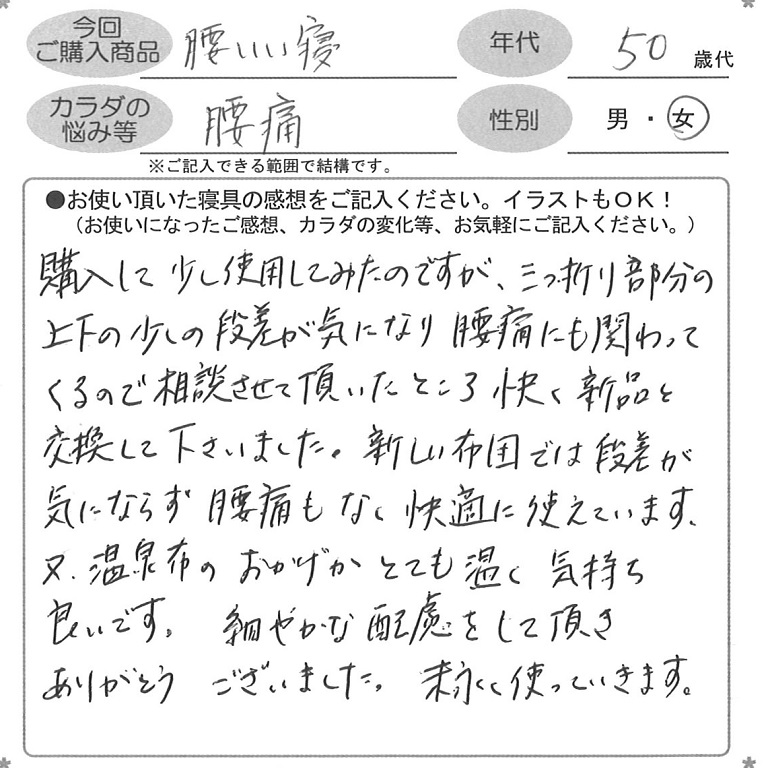 今回
ご購入商品
腰いいい寝
年代
50歳代
カラダの
悩み等
腰痛
性別
男・女
※ご記入できる範囲で結構です。
●お使い頂いた寝具の感想をご記入ください。イラストもOK！
（お使いになったご感想、カラダの変化等、お気軽にご記入ください。）
購入して少し使用してみたのですが、三つ折り部分の
上下の少しの段差が気になり腰痛にも関わって
くるので相談させて頂いたところ快く新品と
交換して下さいました。新しい布団では段差が
気にならず腰痛もなく快適に使えています。
又、温泉布のおかげかとても温く気持ち
良いです。細やかな配慮をして頂き
ありがとうございました。末永く使っていきます。